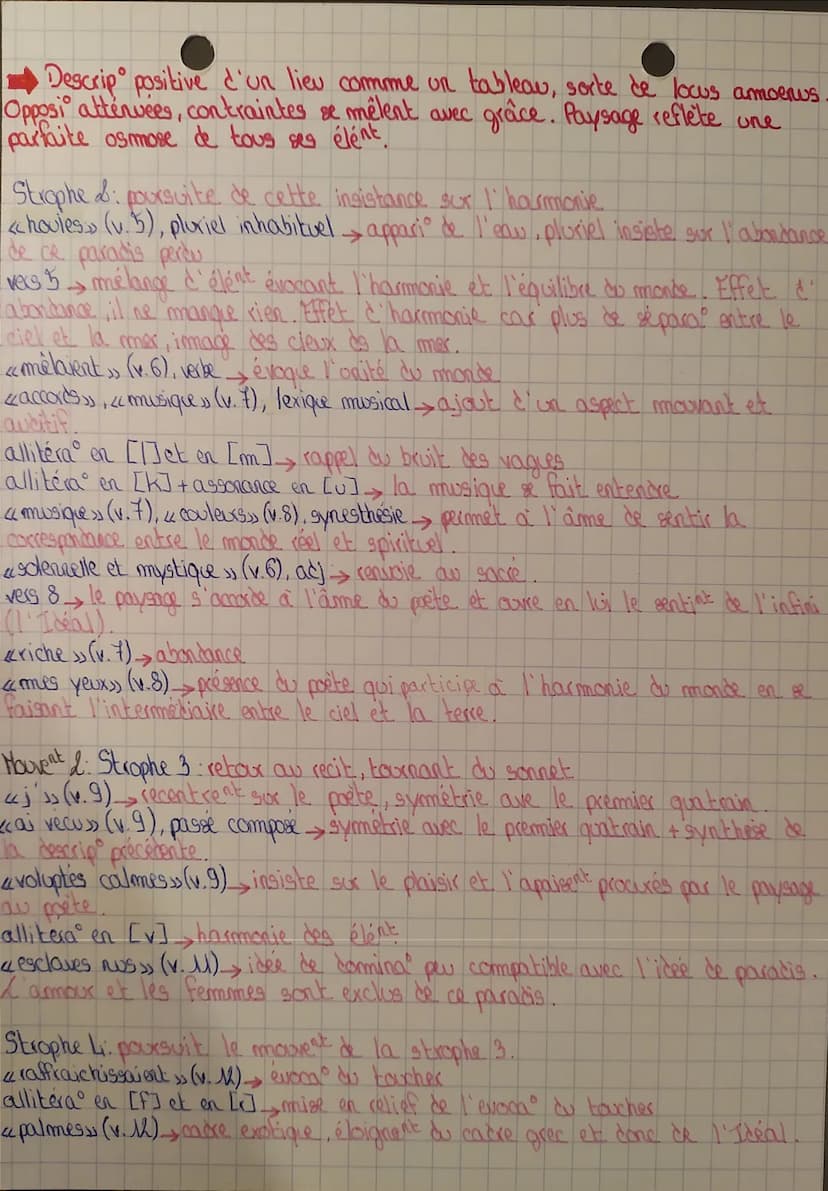 ➡ Descrip° positive d'un lieu comme un tableau, sorte de locus amoenus.
Opposi° atténuées, contraintes se mêlent avec grâce. Paysage reflète une
parfaite osmose de tous ses élént.
Strophe 2: poursuite de cette insistance sur l'harmonie
«houles» (v.5), pluriel inhabituel → appari° de l'eau, pluriel insiste sur l'abondance
de ce paradis perdu
vers 5 → mélange d'élént évocant l'harmonie et l'équilibre du monde. Effet d'
abondance, il ne manque rien. Effet d'harmonie car plus de sépara° entre le
ciel et la mer, image des cieux ds la mer.
«mêlaient» (v.6), verbe → évoque l'unité du monde
«accords», «musique» (v.7), lexique musical → ajout d'un aspect mouvant et
auditif.
allitéra° en [l] et en [m] → rappel du bruit des vagues
allitéra° en [k] + assonance en [u] → la musique se fait entendre
«musique» (v.7), «couleurs» (v.8), synesthésie → permet à l'âme de sentir la
correspondance entre le monde réel et spirituel.
«solennelle et mystique» (v.6), adj → renvoie au sacré.
vers 8 → le paysage s'accorde à l'âme du poète et ouvre en lui le sentint de l'infini
(l'Idéal).
«riche» (v.7) → abondance
«mes yeux» (v.8) → présence du poète qui participe à l'harmonie du monde en se
faisant l'intermédiaire entre le ciel et la terre.
Mouvent 2: Strophe 3: retour au récit, tournant du sonnet
«j'» (v.9) → recentrent sur le poète, symétrie ave le premier quatrain.
«ai vécu» (v.9), passé composé → symétrie avec le premier quatrain + synthèse de
la descrip° précédente.
«voluptés calmes» (v.9) → insiste sur le plaisir et l'apaisent procurés par le paysage
au poète.
allitéra° en [v] → harmonie des élént.
«esclaves nus» (v.11) → idée de domina° peu compatible avec l'idée de paradis.
L'amour et les femmes sont exclus de ce paradis.
Strophe 4: poursuit le mouvent de la strophe 3.
«raffraichissaient» (v.12) → évoca° du toucher
allitéra° en [f] et en [r] → mise en relief de l'évoca° du toucher
«palmes» (v.12) → cadre exotique, éloignent du cadre grec et donc de l'Idéal.